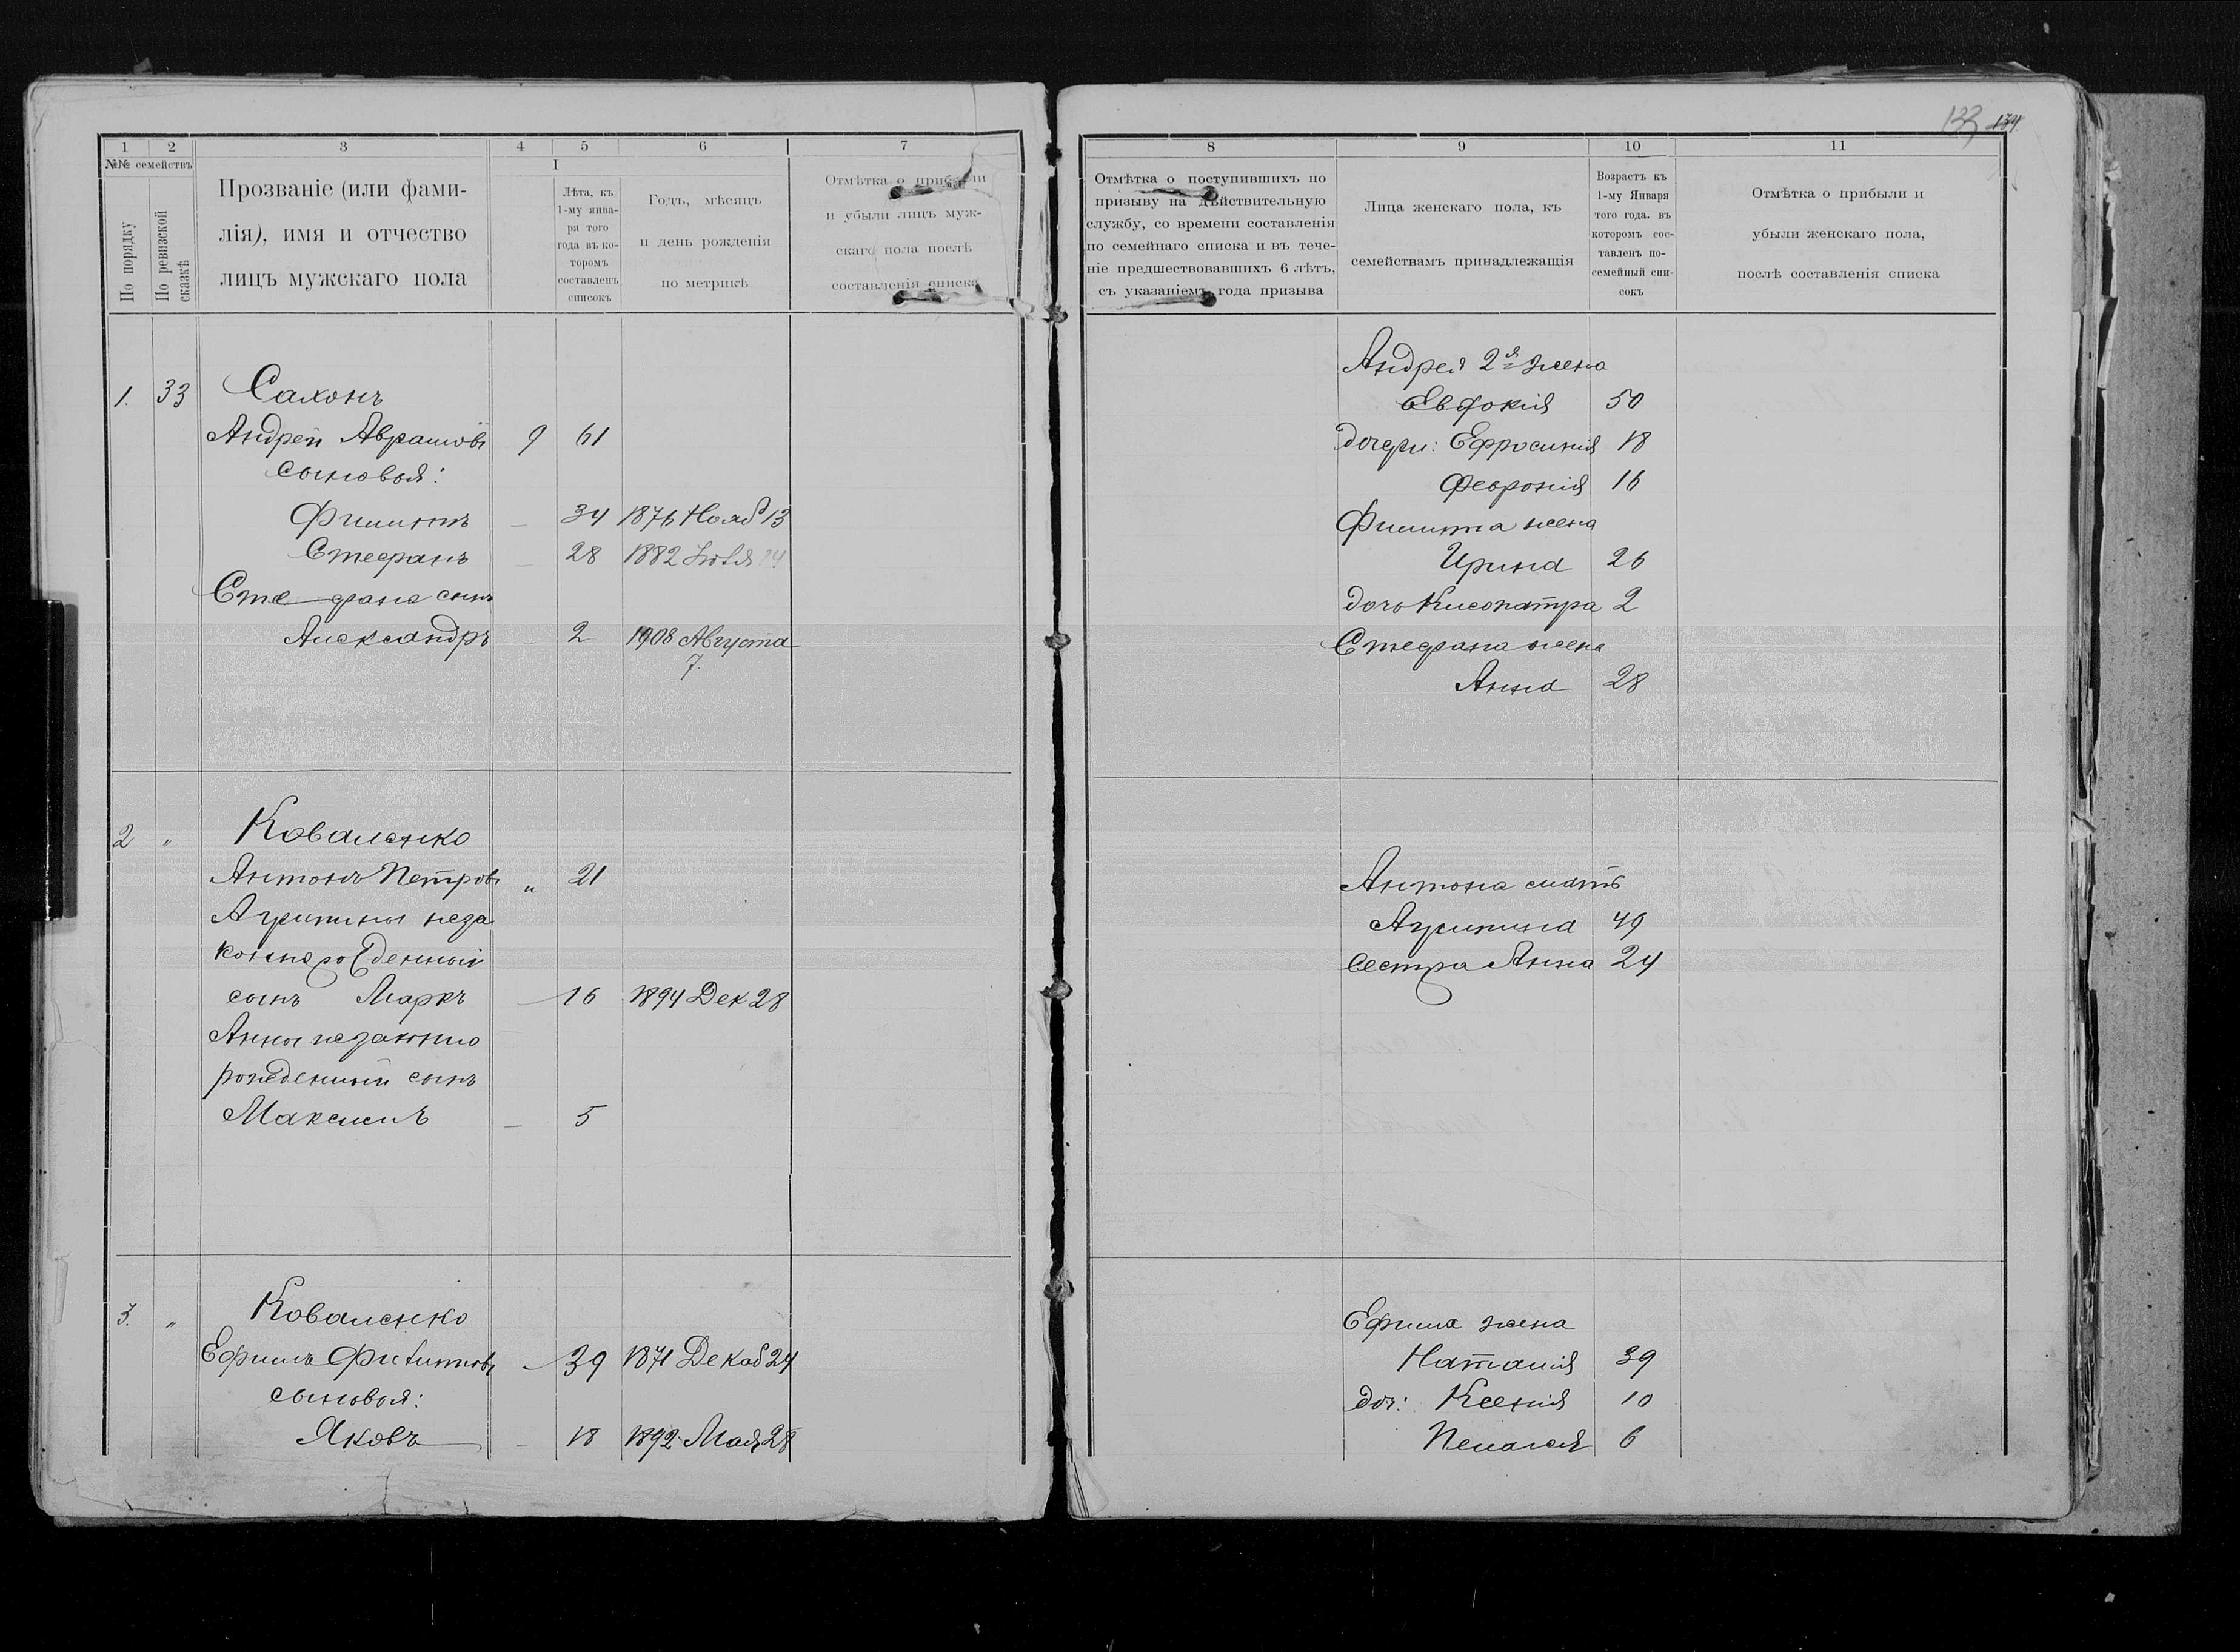 133 134
1 2 3 4 5 6 7
№№ семействъ
По порядку
По ревизской сказкѣ
Прозваніе (или фами-
лія), имя и отчество
лицъ мужскаго пола
I
Лѣта, къ
1-му янва-
ря того
года въ ко-
торомъ
составленъ
списокъ
Годъ, мѣсяцъ
и день рожденія
по метрикѣ
Отмѣтка о прибыли
и убыли лицъ муж-
скаго пола послѣ
составленія списка
1. 33 Сахонъ
Андрей Аврамовъ 9 61
сыновья:
Филиппъ — 34 1876 Нояб 13
Стефанъ — 28 1882 Іюля 14
Стефана сынъ
Александръ — 2 1908 Августа
7.
2 " Коваленко
Антонъ Петровъ " 21
Агрипины неза
коннорожденный
сынъ Маркъ — 16 1894 Дек 28
Анны незаконно
рожденный сынъ
Максимъ — 5
3. " Коваленко
Ефимъ Филиповъ — 39 1871 Декаб 24
сыновья:
Яковъ — 18 1892 Мая 28
8 9 10 11
Отмѣтка о поступившихъ по
призыву на дѣйствительную
службу, со времени составленія
по семейнаго списка и въ тече-
ніе предшествовавшихъ 6 лѣтъ,
съ указаніемъ года призыва
Лица женскаго пола, къ
семействамъ принадлежащія
Возрастъ къ
1-му Января
того года. въ
которомъ сос-
тавленъ по-
семейный спи-
сокъ
Отмѣтка о прибыли и
убыли женскаго пола,
послѣ составленія списка
Андрея 2я жена
Евдокія 50
дочери: Ефросинія 18
Февронія 16
Филиппа жена
Ирина 26
дочь Клеопатра 2
Стефана жена
Анна 28
Антона мать
Агрипина 49
Сестра Анна 24
Ефима жена
Наталія 39
доч: Ксенія 10
Пелагея 6